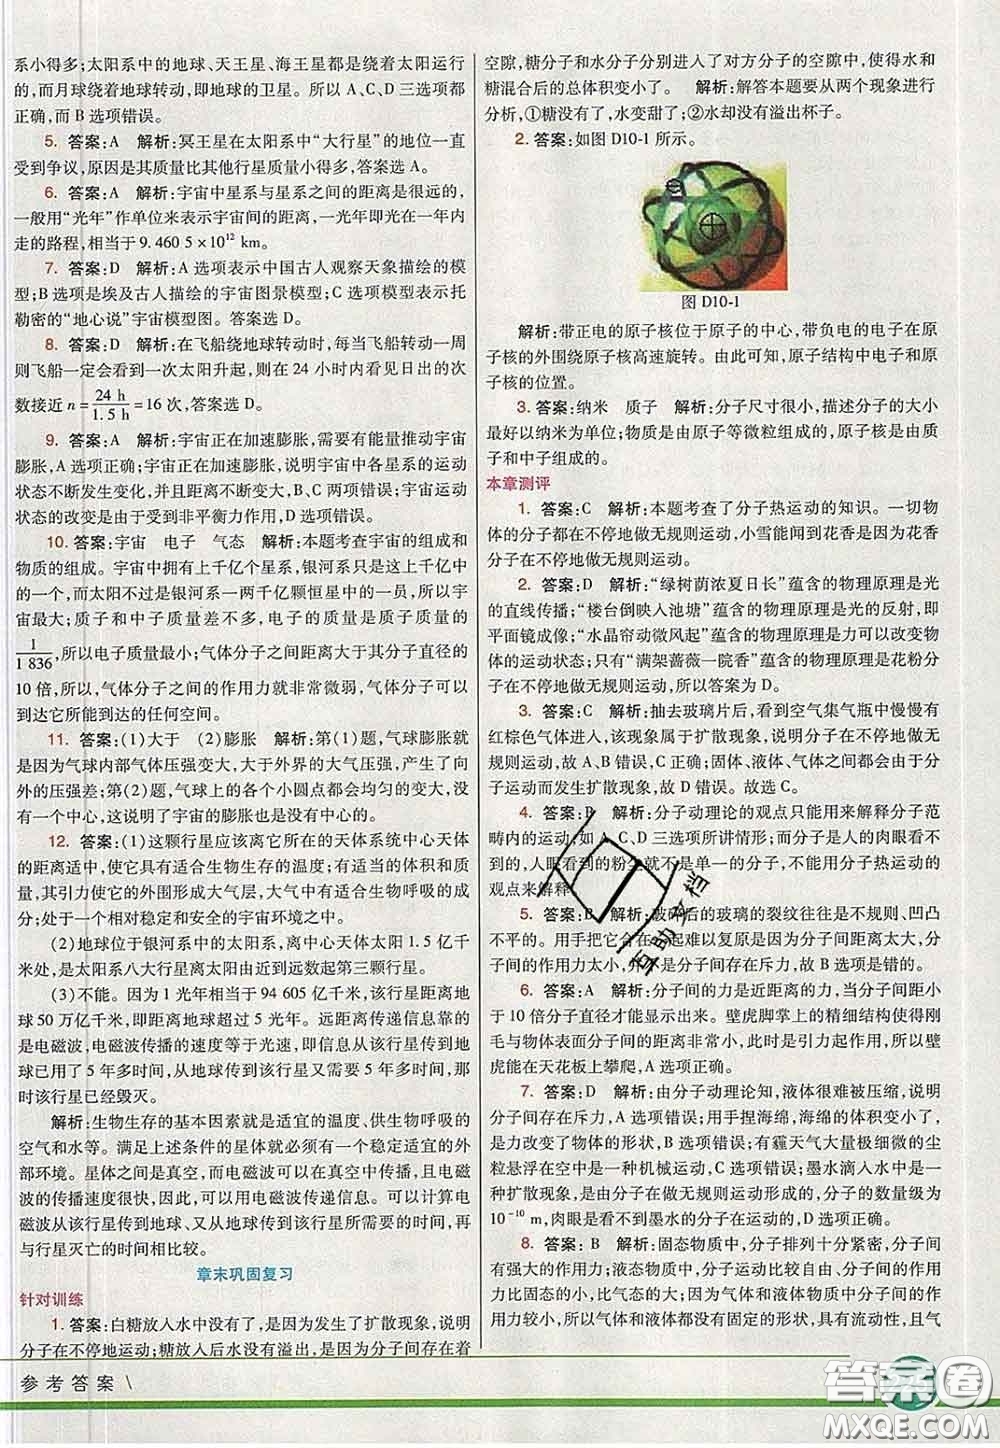 系小得多;太阳系中的地球、天王星、海王星都是绕着太阳运行
的,而月球绕着地球转动,即地球的卫星。所以 A、C、D 三个选项都
正确,而 B 选项错误。
5. 答案:A 解析:冥王星在太阳系中“大行星”的地位一直
受到争议,原因是其质量比其他行星质量小得多,答案选 A。
6. 答案:A 解析:宇宙中星系与星系之间的距离是很远的,
一般用“光年”作单位来表示宇宙间的距离,一光年即光在一年内
走的路程,相当于9.460 5×10¹² km。
7. 答案:D 解析:A 选项表示中国古人观察天象描绘的模
型;B 选项是埃及古人描绘的宇宙图景模型;C 选项模型表示托
勒密的“地心说”宇宙模型图。答案选 D。
8. 答案:D 解析:在飞船绕地球转动时,每当飞船转动一周
则飞船一定会看到一次太阳升起,则在 24 小时内看见日出的次
数接近 n = 24 h / 1.5 h = 16 次,答案选 D。
9. 答案:A 解析:宇宙正在加速膨胀,需要有能量推动宇宙
膨胀,A 选项正确;宇宙正在加速膨胀,说明宇宙中各星系的运动
状态不断发生变化,并且距离不断变大,B、C 两项错误;宇宙运动
状态的改变是由于受到非平衡力作用,D 选项错误。
10. 答案:宇宙 电子 气态 解析:本题考查宇宙的组成和
物质的组成。宇宙中拥有上千亿个星系,银河系只是这上千亿中
的一个,而太阳不过是银河系一两千亿颗恒星中的一员,所以宇
宙最大;质子和中子质量差不多,电子的质量是质子质量的
1/1 836,所以电子质量最小;气体分子之间距离大于其分子直径的
10 倍,所以,气体分子之间的作用力就非常微弱,气体分子可以
到达它所能到达的任何空间。
11. 答案:(1)大于 (2)膨胀 解析:第(1)题,气球膨胀就
是因为气球内部气体压强变大,大于外界的大气压强,产生了向
外的压强差;第(2)题,气球上的各个小圆点都会均匀的变大,没
有一个中心,这说明了宇宙的膨胀也是没有中心的。
12. 答案:(1)这颗行星应该离它所在的天体系统中心天体
的距离适中,使它具有适合生物生存的温度;有适当的体积和质
量,其引力使它的外围形成大气层,大气中有适合生物呼吸的成
分;处于一个相对稳定和安全的宇宙环境之中。
(2)地球位于银河系中的太阳系,离中心天体太阳 1.5 亿千
米处,是太阳系八大行星离太阳由近到远数起第三颗行星。
(3)不能。因为 1 光年相当于 94 605 亿千米,该行星距离地
球 50 万亿千米,即该行星距离地球超过 5 光年。远距离传递信息靠的
是电磁波,电磁波传播的速度等于光速,即信息从该行星传到地
球已用了 5 年多时间,所以地球上的人类收到信息时,5 年多时间
前该行星已经毁灭。
解析:生物生存的基本因素就是适宜的温度、供生物呼吸的
空气和水等。满足上述条件的星体就必须有一个稳定适宜的外
部环境。星体之间是真空,而电磁波可以在真空中传播,且电磁波
的传播速度非常大,因此,可以用电磁波传递信息。可以计算电
磁波从该行星传到地球、又从地球传到该行星所需要的时间,再
与行星灭亡的时间相比较。
章末巩固复习
针对训练
1. 答案:白糖放入水中没有了,是因为发生了扩散现象,说明
分子在不停地运动;糖放入后水没有溢出,是因为分子间存在着
空隙,糖分子和水分子分别进入了对方分子的空隙中,使得水和
糖混合后的总体积变小了。 解析:解答本题要从两个现象进行
分析,①糖没有了,水变甜了;②水却没有溢出杯子。
2. 答案:如图 D10-1 所示。
图 D10-1
解析:带正电的原子核位于原子的中心,带负电的电子在原
子核的外围绕原子核高速旋转。由此可知,原子结构中电子和原
子核的位置。
3. 答案:纳米 质子 解析:分子尺寸很小,描述分子的大小
最好以纳米为单位;物质是由原子等微粒组成的,原子核是由质
子和中子组成的。
本章测评
1. 答案:C 解析:本题考查了分子热运动的知识。一切物
体的分子都在不停地做无规则运动,小雪能闻到花香是因为花香
分子在不停地做无规则运动。
2. 答案:D 解析:“绿树荫浓夏日长”蕴含的物理原理是光
的直线传播;“楼台倒映入池塘”蕴含的物理原理是光的反射,即
平面镜成像;“水晶帘动微风起”蕴含的物理原理是力可以改变物
体的运动状态;只有“满架蔷薇一院香”蕴含的物理原理是花粉分
子在不停地做无规则运动,所以答案为 D。
3. 答案:C 解析:抽去玻璃片后,看到空气集气瓶中慢慢有
红棕色气体进入,该现象属于扩散现象,说明分子在不停地做无
规则运动,故 A、B 错误,C 正确;固体、液体、气体之间都会由于分
子运动而发生扩散现象,故 D 错误。故选 C。
4. 答案:B 解析:分子动理论的观点只能用来解释分子范
畴内的运动,如 A、C、D 三选项所讲情形;而分子是人的肉眼看不
到的,人眼看到的粉尘就不是单一的分子,不能用分子热运动的
观点来解释。
5. 答案:B 解析:破碎后的玻璃的裂纹往往是不规则、凹凸
不平的。用手把它合在一起难以复原是因为分子间距离太大,分
子间的作用力太小,并不是分子间存在斥力,故 B 选项是错误的。
6. 答案:A 解析:分子间的力是近距离的力,当分子间距小
于 10 倍分子直径才能显示出来。壁虎脚掌上的精细结构使得刚
毛与物体表面分子间的距离非常小,于是引力起作用,所以壁
虎能在天花板上攀爬,A 选项正确。
7. 答案:D 解析:由分子动理论知,液体很难被压缩,说明
分子间存在斥力,A 选项错误;用手捏海绵,海绵的体积变小了,
是力改变了物体的形状,B 选项错误;有霾天气大量极细微的尘
粒悬浮在空中是一种机械运动,C 选项错误;墨水滴入水中是一
种扩散现象,是由分子做无规则运动形成的,分子的数量级为
10⁻¹⁰ m,肉眼是看不到墨水的分子在运动的,D 选项正确。
8. 答案:B 解析:固态物质中,分子排列十分紧密,分子间
有强大的作用力;液态物质中,分子运动较自由,分子间的作用力
比固态的小;气态物质中,分子间距很大,分子极度散乱,分子间的作
用力较小,所以气体和液体都没有固定的形状,具有流动性,且气
参考答案 \
答案圈
MXQE.COM